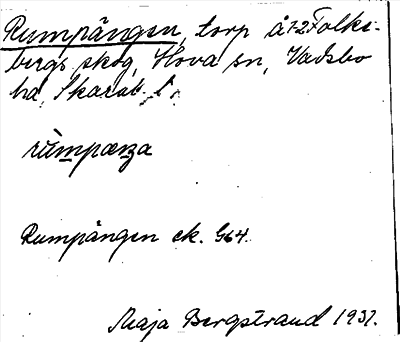 Rumpängen, torp å 1-2 Folks-
bergs skog, Hova sn, Vadsbo
hd, Skarab. l.
Rumpängen ek. G64.
Maja Bergstrand 1937.